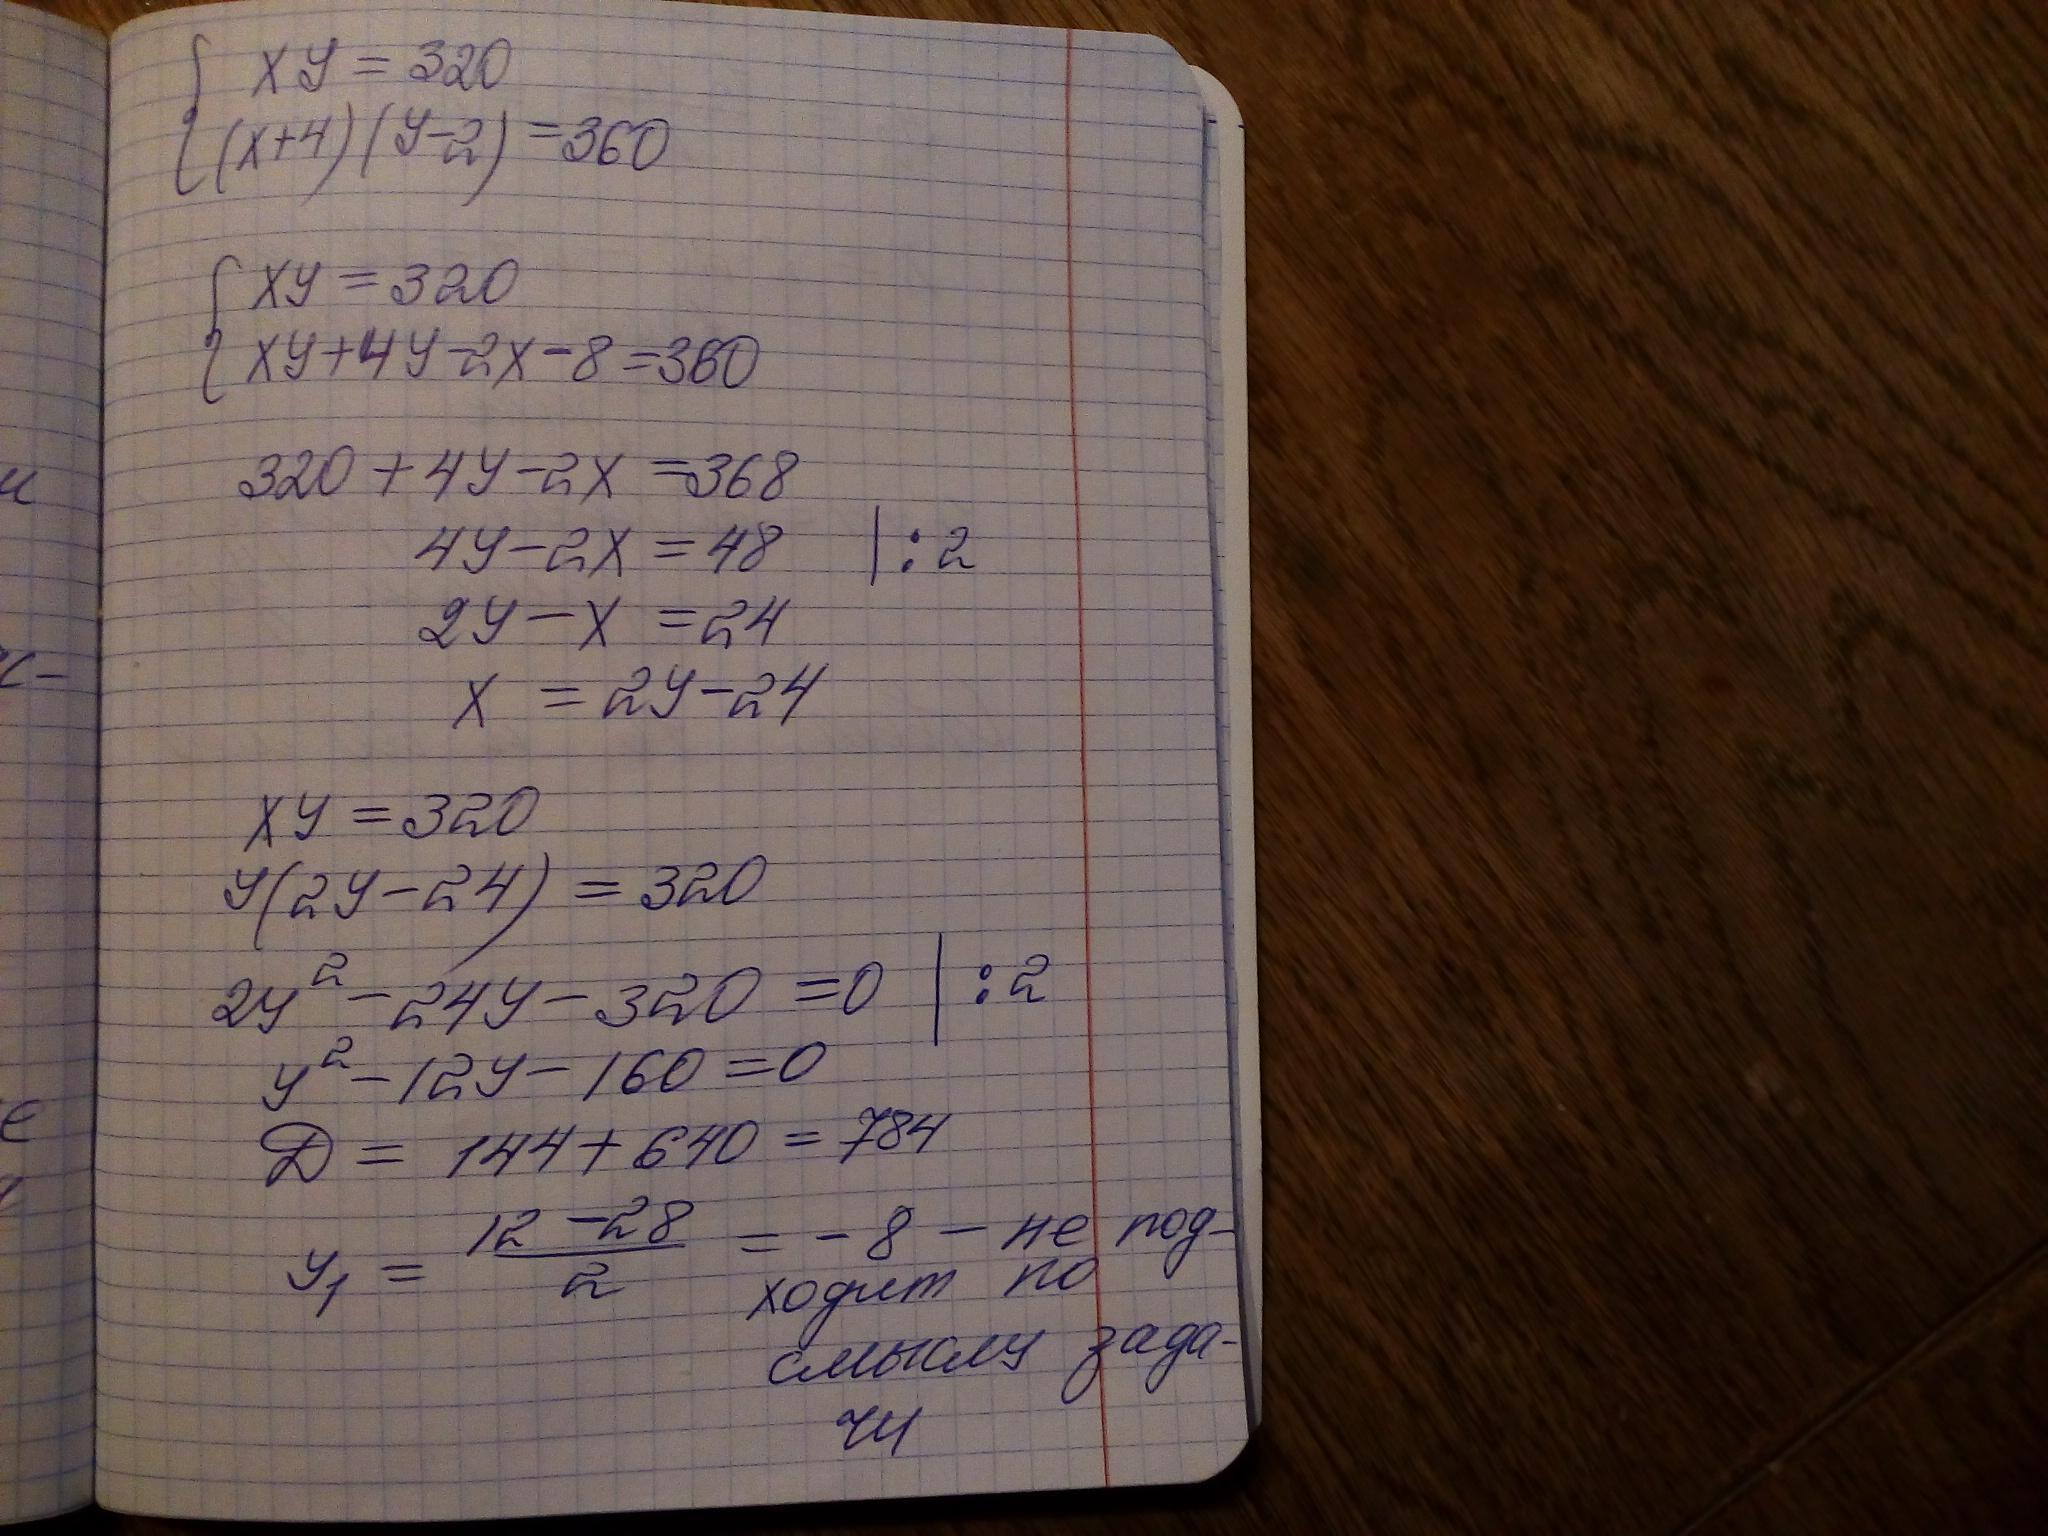 { xy = 320
(x+4)(y-2) = 360
{ xy = 320
xy+4y-2x-8=360
320+4y-2x=368
4y-2x=48 |:2
2y-x=24
x=2y-24
xy=320
y(2y-24)=320
2y²-24y-320=0 |:2
y²-12y-160=0
D=144+640=784
y₁ = (12-28)/2 = -8 - не под-
ходит по
смыслу зада-
чи